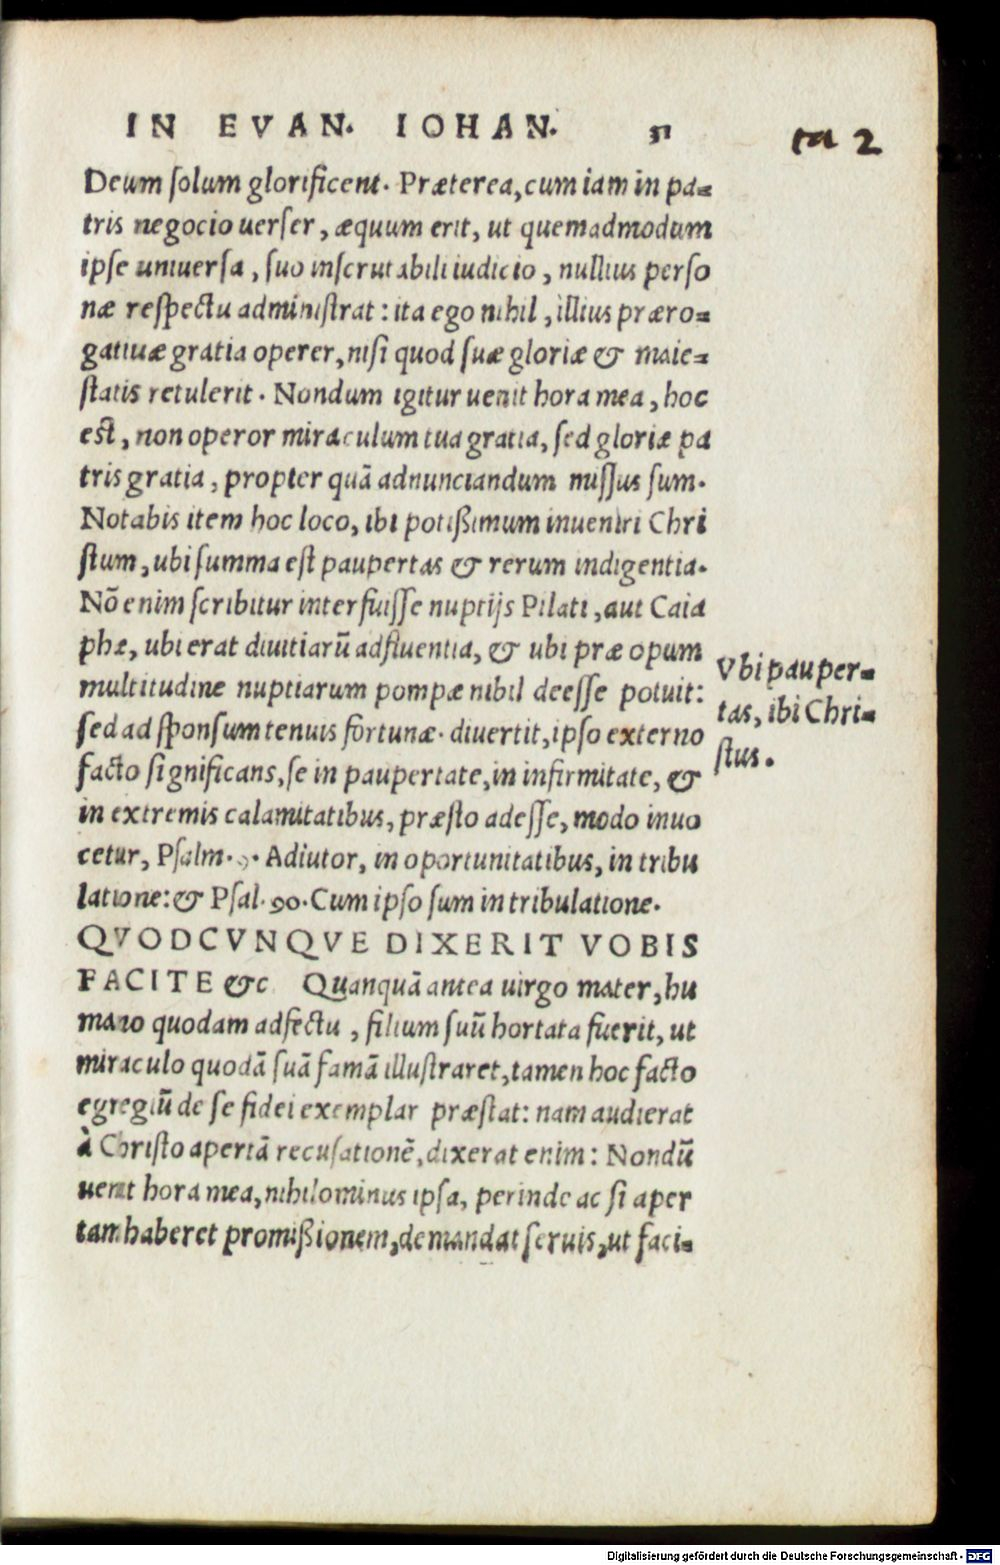 IN EVAN. IOHAN. 31
ca 2
Deum ſolum glorificent. Præterea, cum iam in pa-
tris negocio uerſer, æquum erit, ut quemadmodum
ipſe uniuerſa, ſuo inſcrutabili iudicio, nullius perſo
næ reſpectu adminiſtrat: ita ego nihil, illius præro-
gatiuæ gratia operer, niſi quod ſuæ gloriæ & maie-
ſtatis retulerit. Nondum igitur uenit hora mea, hoc
eſt, non operor miraculum tua gratia, ſed gloriæ pa
tris gratia, propter quã adnunciandum miſſus ſum.
Notabis item hoc loco, ibi potißimum inueniri Chri
ſtum, ubi ſumma eſt paupertas & rerum indigentia.
Nõ enim ſcribitur interfuiſſe nuptijs Pilati, aut Caia
phæ, ubi erat diuitiarũ adfluentia, & ubi præ opum
multitudine nuptiarum pompæ nihil deeſſe potuit:
ſed ad ſponſum tenuis fortunæ. diuertit, ipſo externo
facto ſignificans, ſe in paupertate, in infirmitate, &
in extremis calamitatibus, præſto adeſſe, modo inuo
cetur, Pſalm. 9. Adiutor, in oportunitatibus, in tribu
latione: & Pſal. 90. Cum ipſo ſum in tribulatione.
Vbi pauper-
tas, ibi Chri-
ſtus.
QVODCVNQVE DIXERIT VOBIS
FACITE &c Quanquã antea uirgo mater, hu
mano quodam adfectu, filium ſuũ hortata fuerit, ut
miraculo quodã ſuã famã illuſtraret, tamen hoc facto
egregiũ de ſe fidei exemplar præſtat: nam audierat
à Chriſto apertã recuſationẽ, dixerat enim: Nondũ
uenit hora mea, nihilominus ipſa, perinde ac ſi aper
tam haberet promißionem, demandat ſeruis, ut faci-
Digitalisierung gefördert durch die Deutsche Forschungsgemeinschaft - DFG